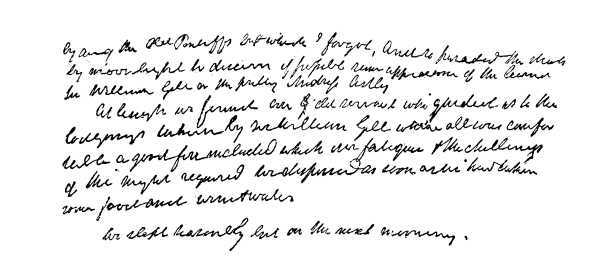 by any the old Pontiffs but which I forget, and so paraded the streets
by moonlight to discover if possible some appearance of the learned
Sir William Gell or the pretty Mrs Ashley
At length we found our old servant who guided us to the
lodgings taken by Sir William Gell where all was comfor
table a good fire included which our fatigue & the chillings
of the night required we dispersed as soon as we had taken
some food and wine & water
We slept reasonably but on the next morning.